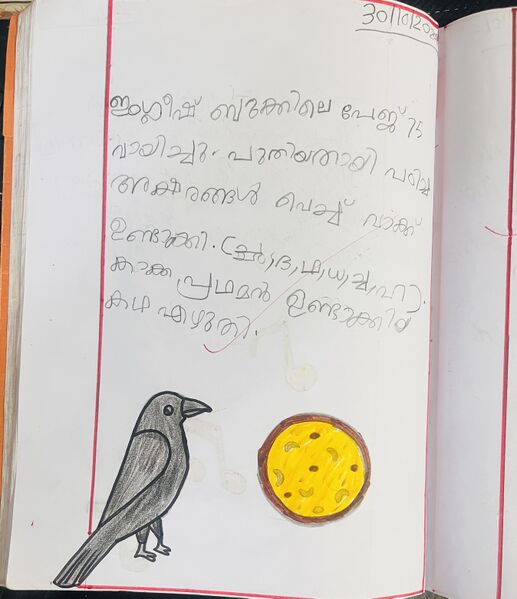 30/10/20
ഇംഗ്ലീഷ് ബുക്കിലെ പേജ് 75
വായിച്ചു. പുതിയതായി പഠിച്ച
അക്ഷരങ്ങൾ വെച്ച് വാക്ക്
ഉണ്ടാക്കി. (ർ, ദ, ഫ, ധ, ച്ച, ഹ).
കാക്ക പ്രഥമൻ ഉണ്ടാക്കിയ
കഥ എഴുതി.